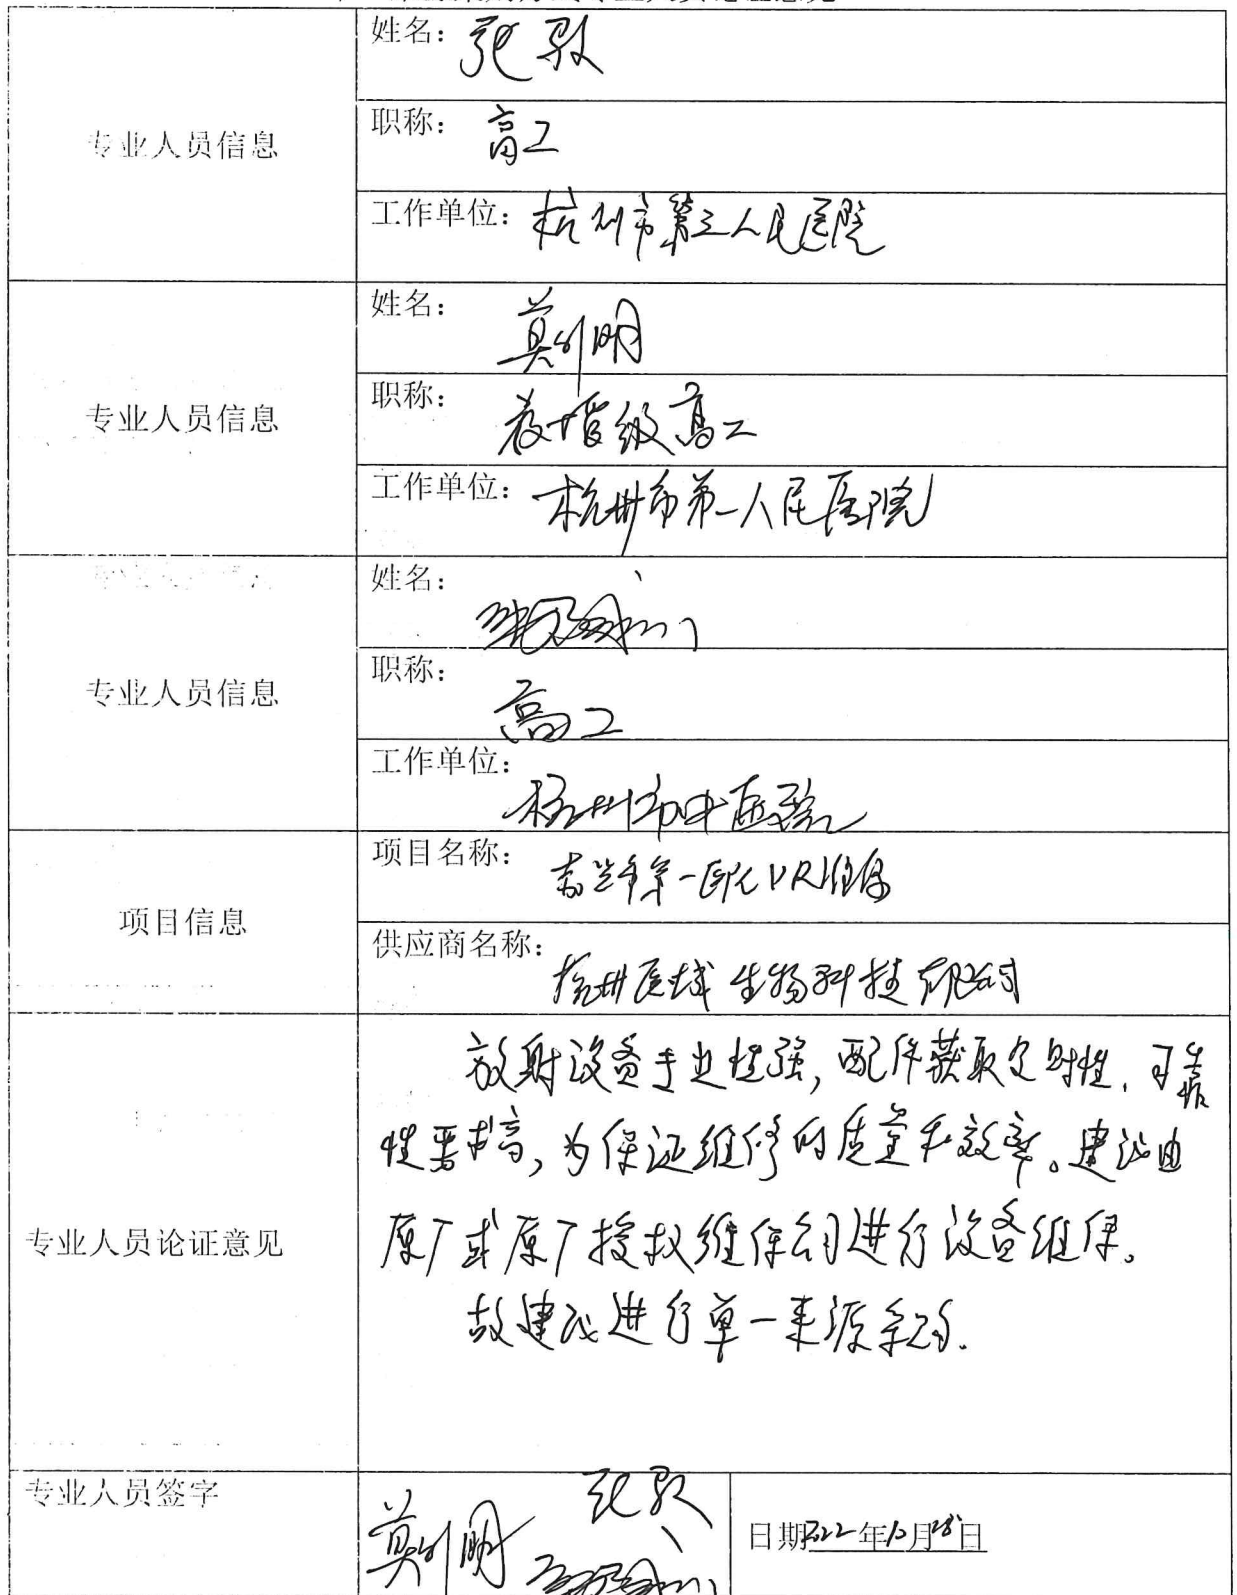 姓名：张
职称：高工
工作单位：杭州市第三人民医院
专业人员信息
姓名：莫明
职称：教授级高工
工作单位：杭州市第一人民医院
专业人员信息
姓名：
职称：高工
工作单位：杭州市中医院
专业人员信息
项目名称：市第一医院DR维保
供应商名称：杭州医域生物科技有限公司
项目信息
放射设备专业性强，配件获取及时性、可靠
性要求高，为保证维修的质量和效率。建议由
原厂或原厂授权维保公司进行设备维保。
故建议进行单一来源采购.
专业人员论证意见
专业人员签字
莫明 张
日期2022年12月28日